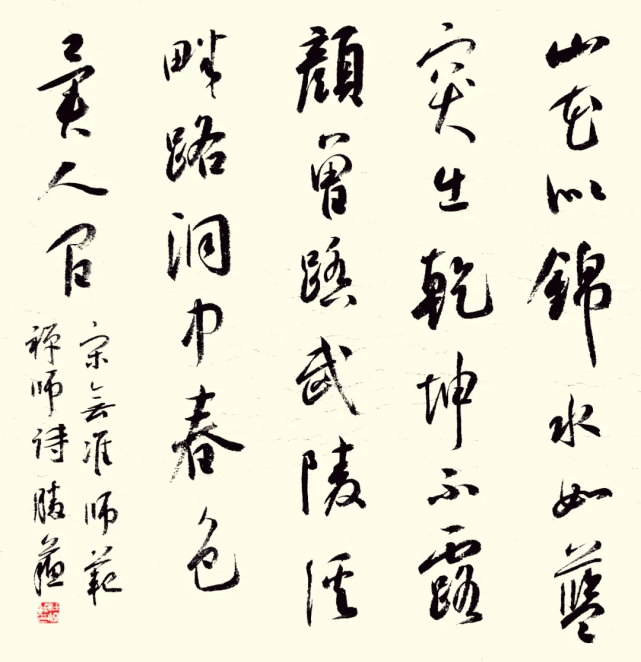 山花似錦水如藍
突出乾坤不露
顏曾踏武陵溪
畔路洞中春色
異人間
宋無准師範
禪師詩